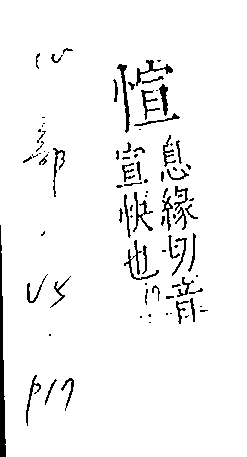 愃
息緣切音
宣快也
心部.V5.P17